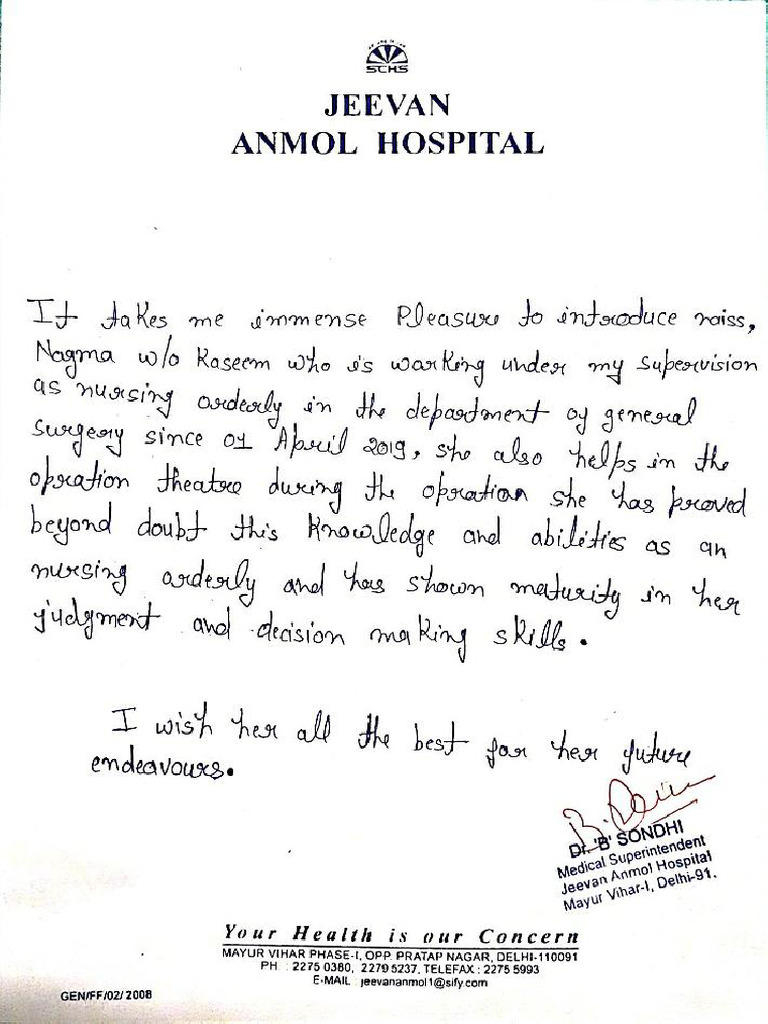 SCHS
JEEVAN
ANMOL HOSPITAL
It takes me immense Pleasure to introduce miss,
Nagma w/o Kaseem who is warking under my supervision
as nursing orderly in the department of general
surgery since 01 April 2019, she also helps in the
opration theatre during the opration she has proved
beyond doubt this Knowledge and abilities as an
nursing orderly and has shown maturity in her
judgment and decision making skills.
I wish her all the best for her future
endeavours.
Dr. 'B' SONDHI
Medical Superintendent
Jeevan Anmol Hospital
Mayur Vihar-I, Delhi-91.
Your Health is our Concern
MAYUR VIHAR PHASE-I, OPP. PRATAP NAGAR, DELHI-110091
PH : 2275 0380, 2279 5237, TELEFAX : 2275 5993
E-MAIL : jeevananmol1@sify.com
GEN/FF/02/2008